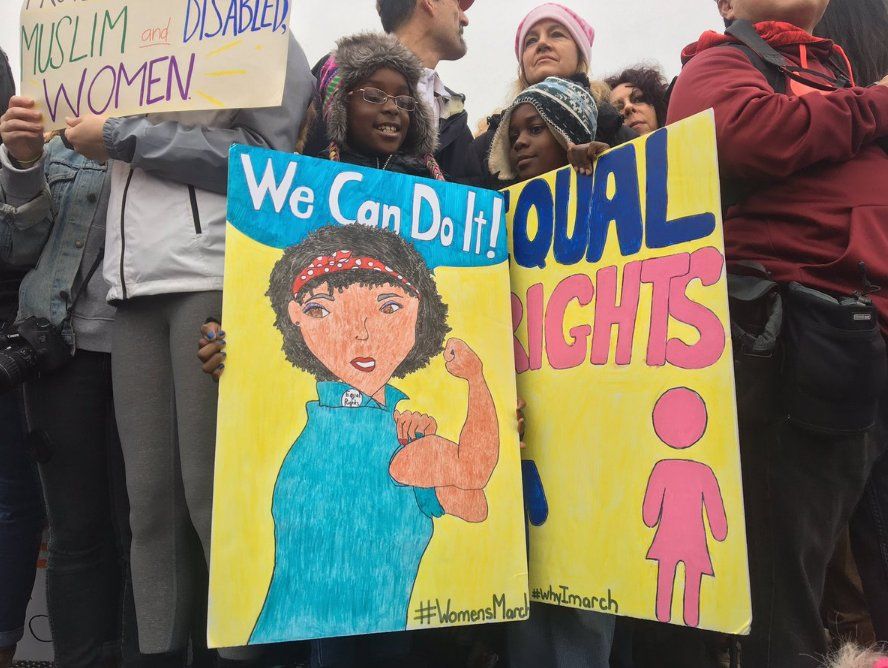 MUSLIM and DISABLED,
WOMEN.
We Can Do It!
Equal
Rights
#WomensMarch
EQUAL
RIGHTS
#whyImarch